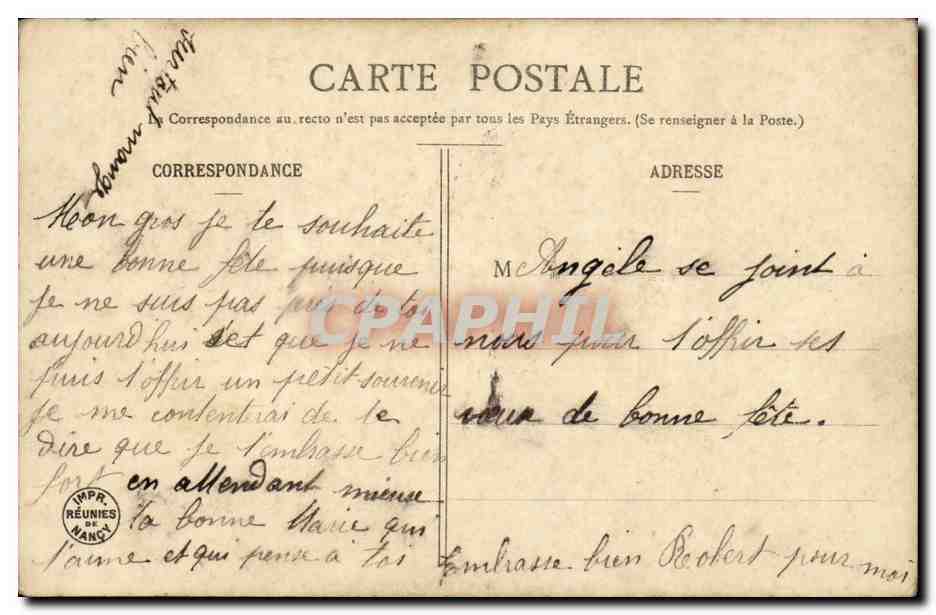 CARTE POSTALE
La Correspondance au recto n'est pas acceptée par tous les Pays Étrangers. (Se renseigner à la Poste.)
CORRESPONDANCE
Mon gros je te souhaite
une bonne fête puisque
je ne suis pas près de toi
aujourd'hui et que je ne
puis t'offrir un petit souvenir
je me contenterai de te
dire que je t'embrasse bien
fort en attendant mieux
Ta bonne Marie qui
t'aime et qui pense à toi
surtout mange
bien
ADRESSE
M Angèle se joint à
nous pour t'offrir ses
vœux de bonne fête.
Embrasse bien Robert pour moi
IMPR.
RÉUNIES
DE
NANCY
CPAPHIL